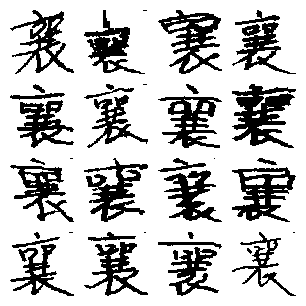 襄襄襄襄
襄襄襄襄
襄襄襄襄
襄襄襄襄